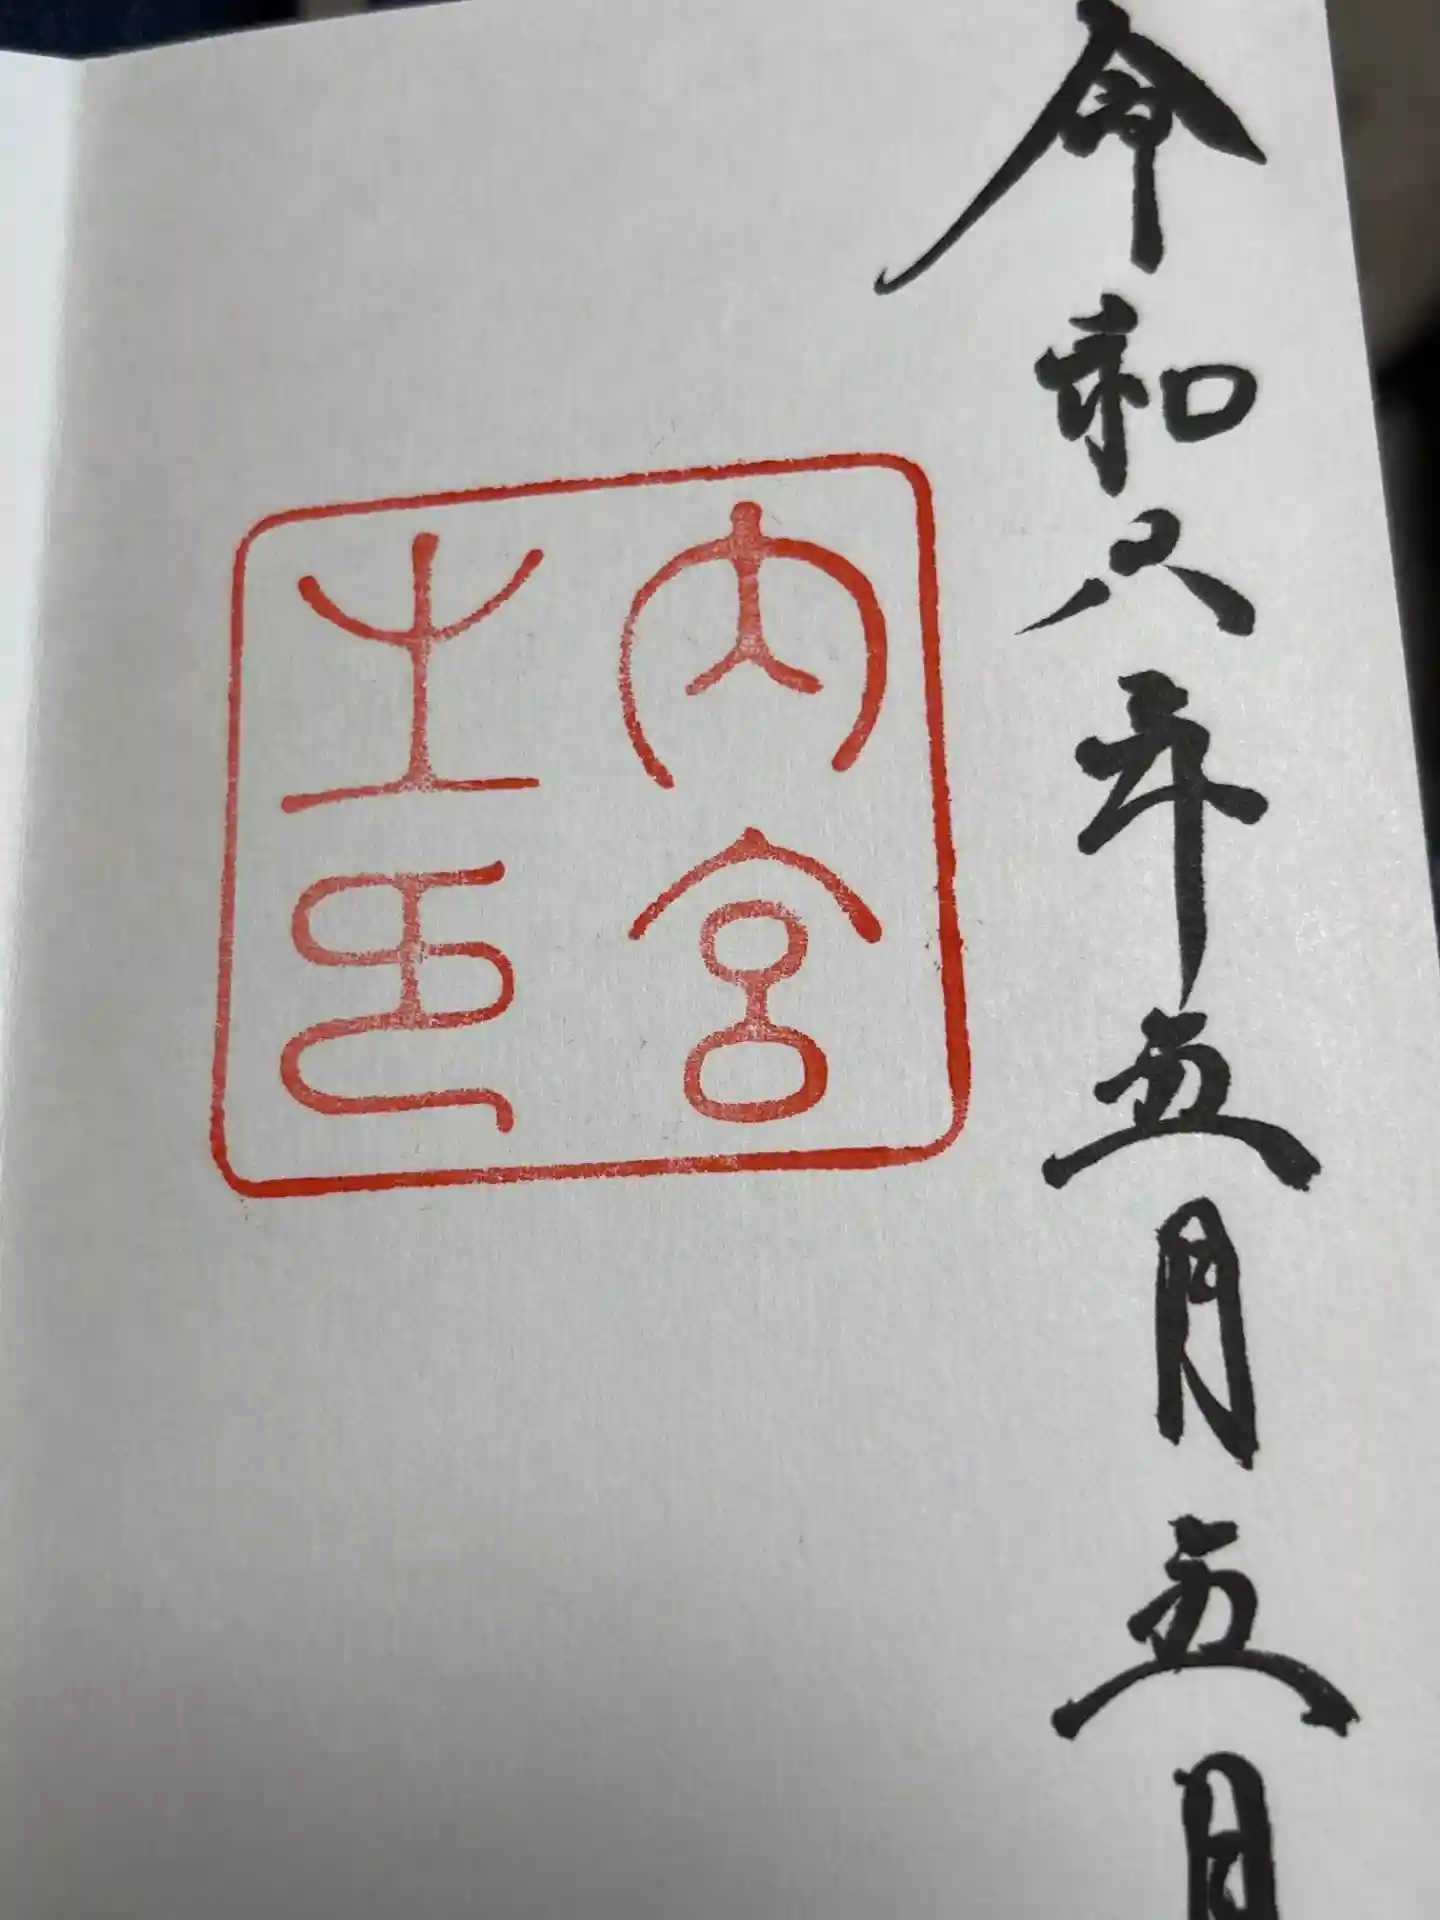 令和八年五月五日
内宮
之印